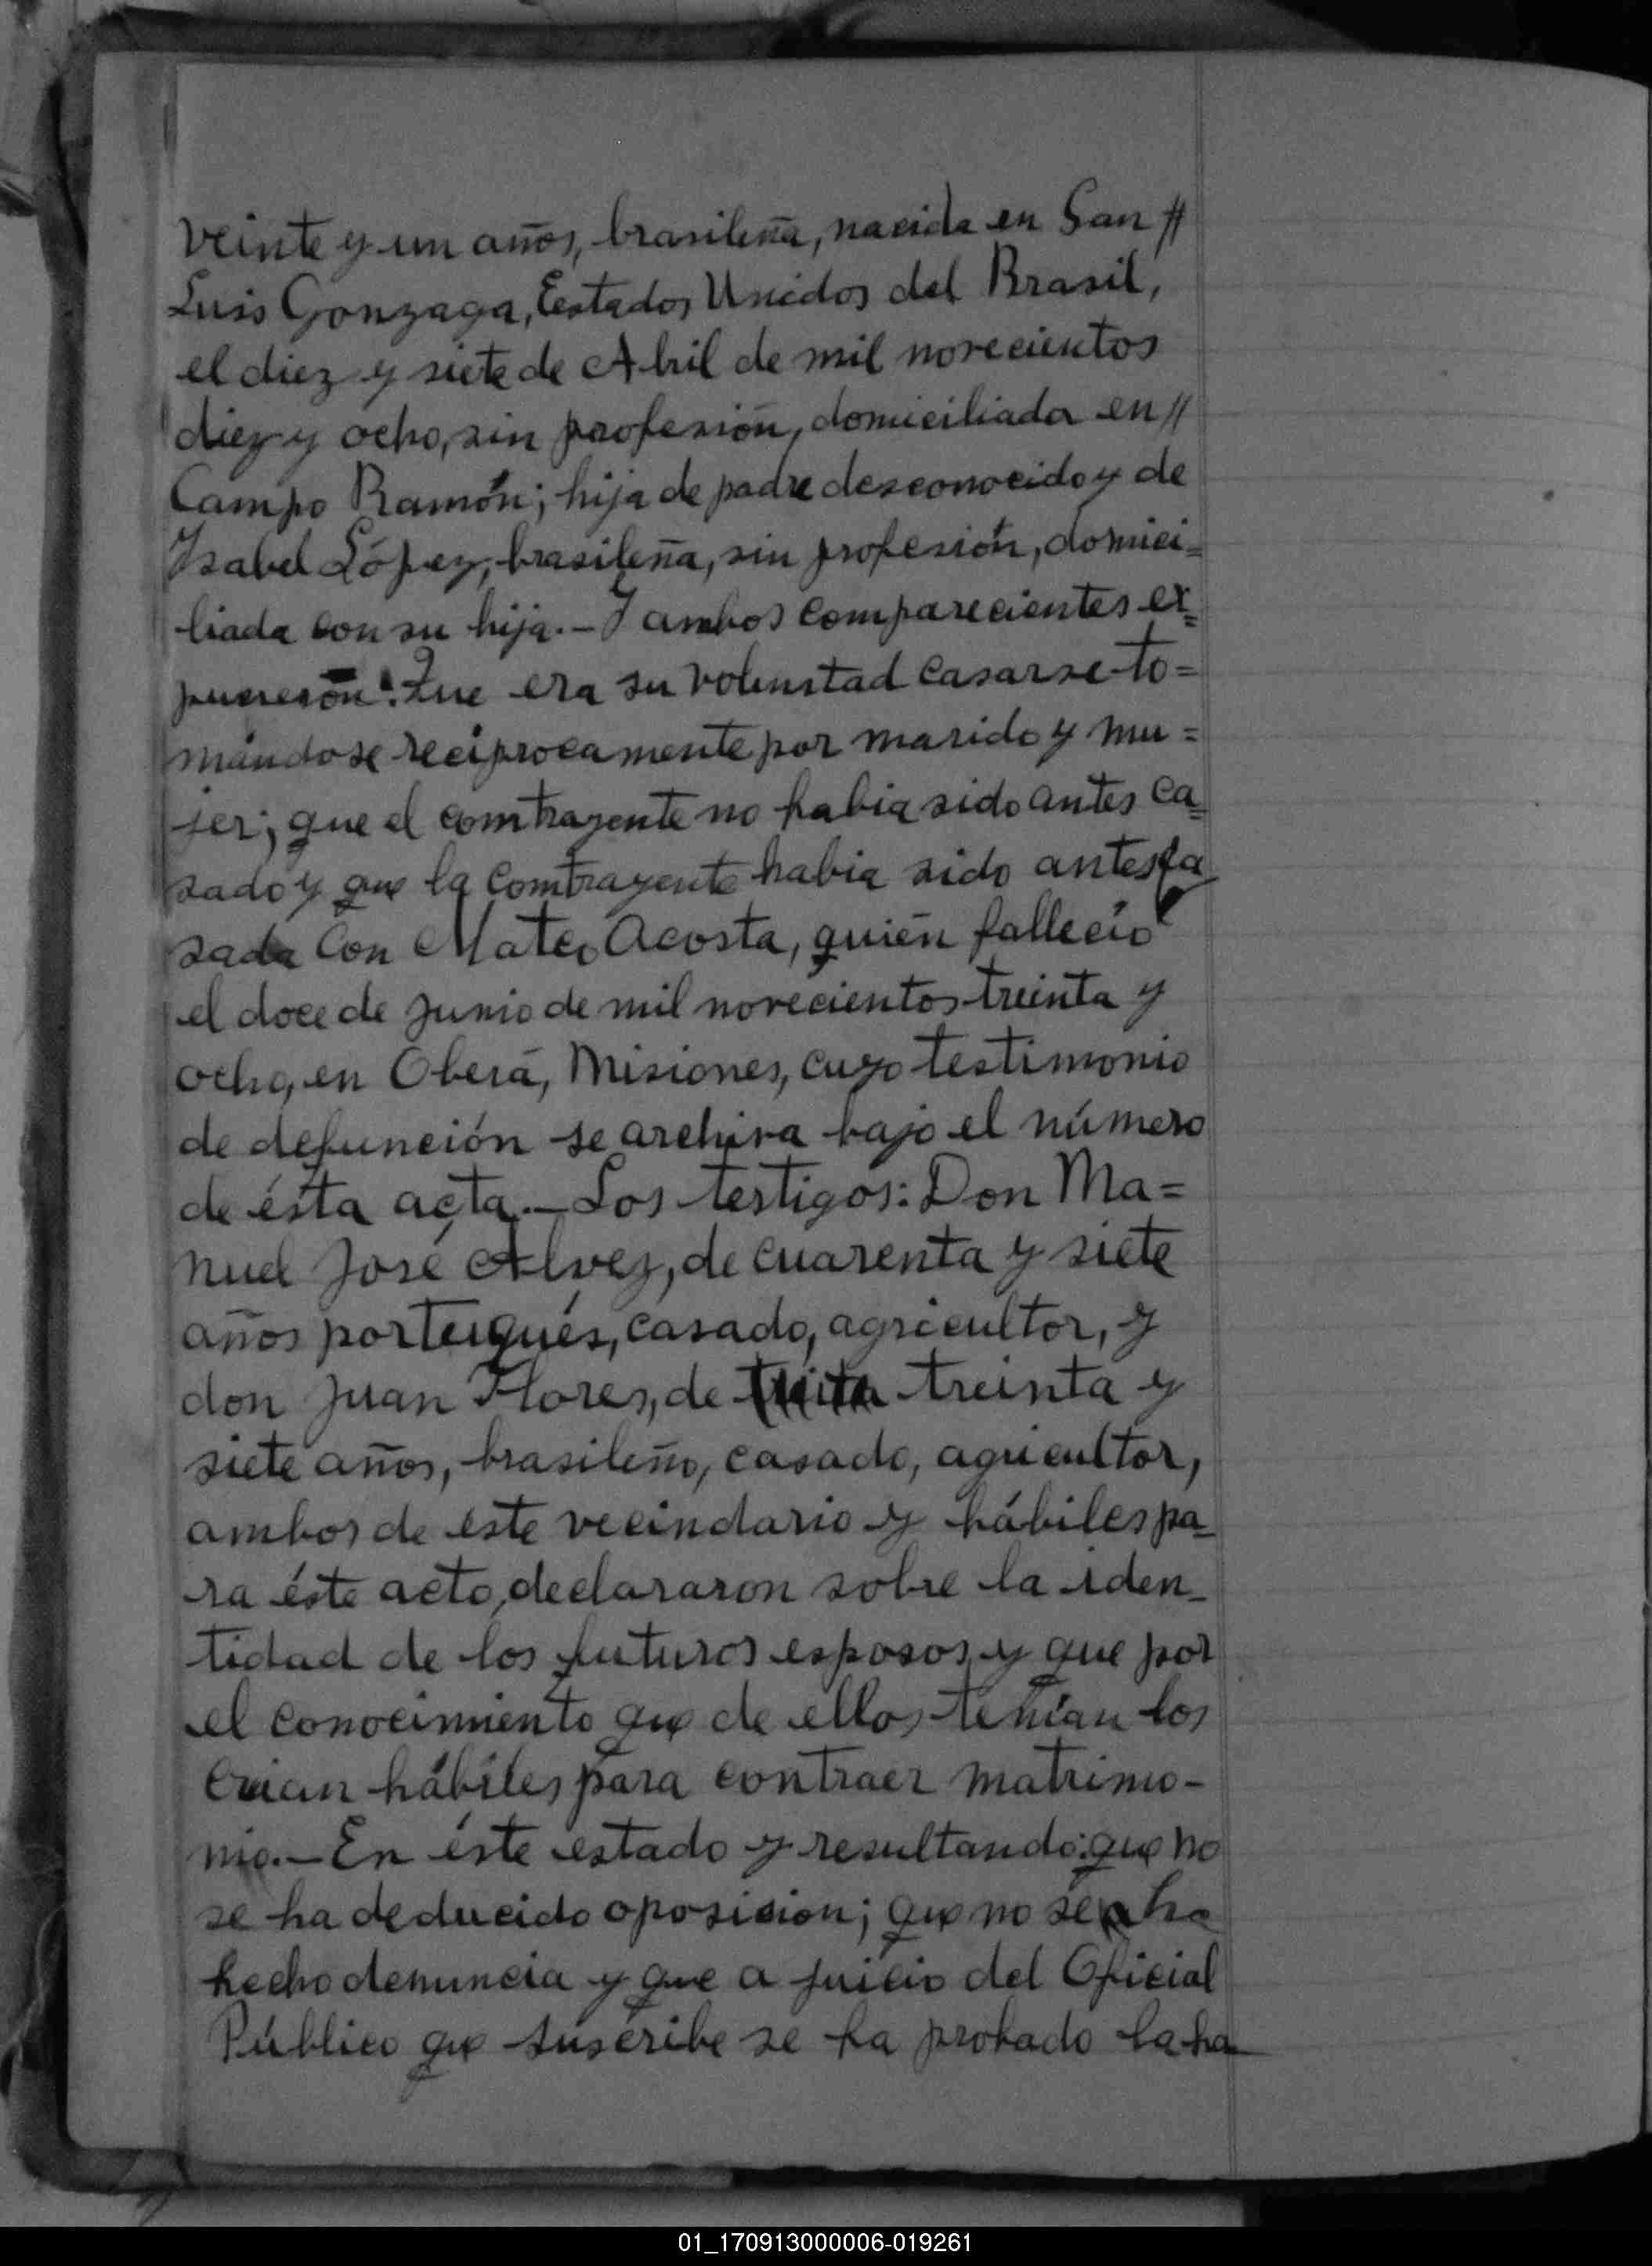 veinte y un años, brasileña, nacida en San //
Luis Gonzaga, Eestados Unidos del Brasil,
el diez y siete de Abril de mil novecientos
diez y ocho, sin profesión, domiciliada en //
Campo Ramón; hija de padre desconocido y de
Isabel López, brasileña, sin profesión, domici=
liada con su hija.- I ambos comparecientes ex=
pusieron: Que era su voluntad casarse to=
mándose reciprocamente por marido y mu=
jer; que el contrayente no habia sido antes ca=
sado y que la contrayente habia sido antes ca
sada con Mateo Acosta, quién falleció
el doce de Junio de mil novecientos treinta y
ocho, en Oberá, Misiones, cuyo testimonio
de defunción se archiva bajo el número
de ésta acta.- Los testigos: Don Ma=
nuel José Alvez, de cuarenta y siete
años portugués, casado, agricultor, y
don Juan Flores, de treinta y
siete años, brasileño, casado, agricultor,
ambos de este vecindario y hábiles pa-
ra éste acto, declararon sobre la iden-
tidad de los futuros esposos y que por
el conocimiento que de ellos tenían los
creian hábiles para contraer matrimo-
nio.- En éste estado y resultando: que no
se ha deducido oposicion; que no se ha
hecho denuncia y que a juicio del Oficial
Público que suscribe se ha probado la ha
01_170913000006-019261